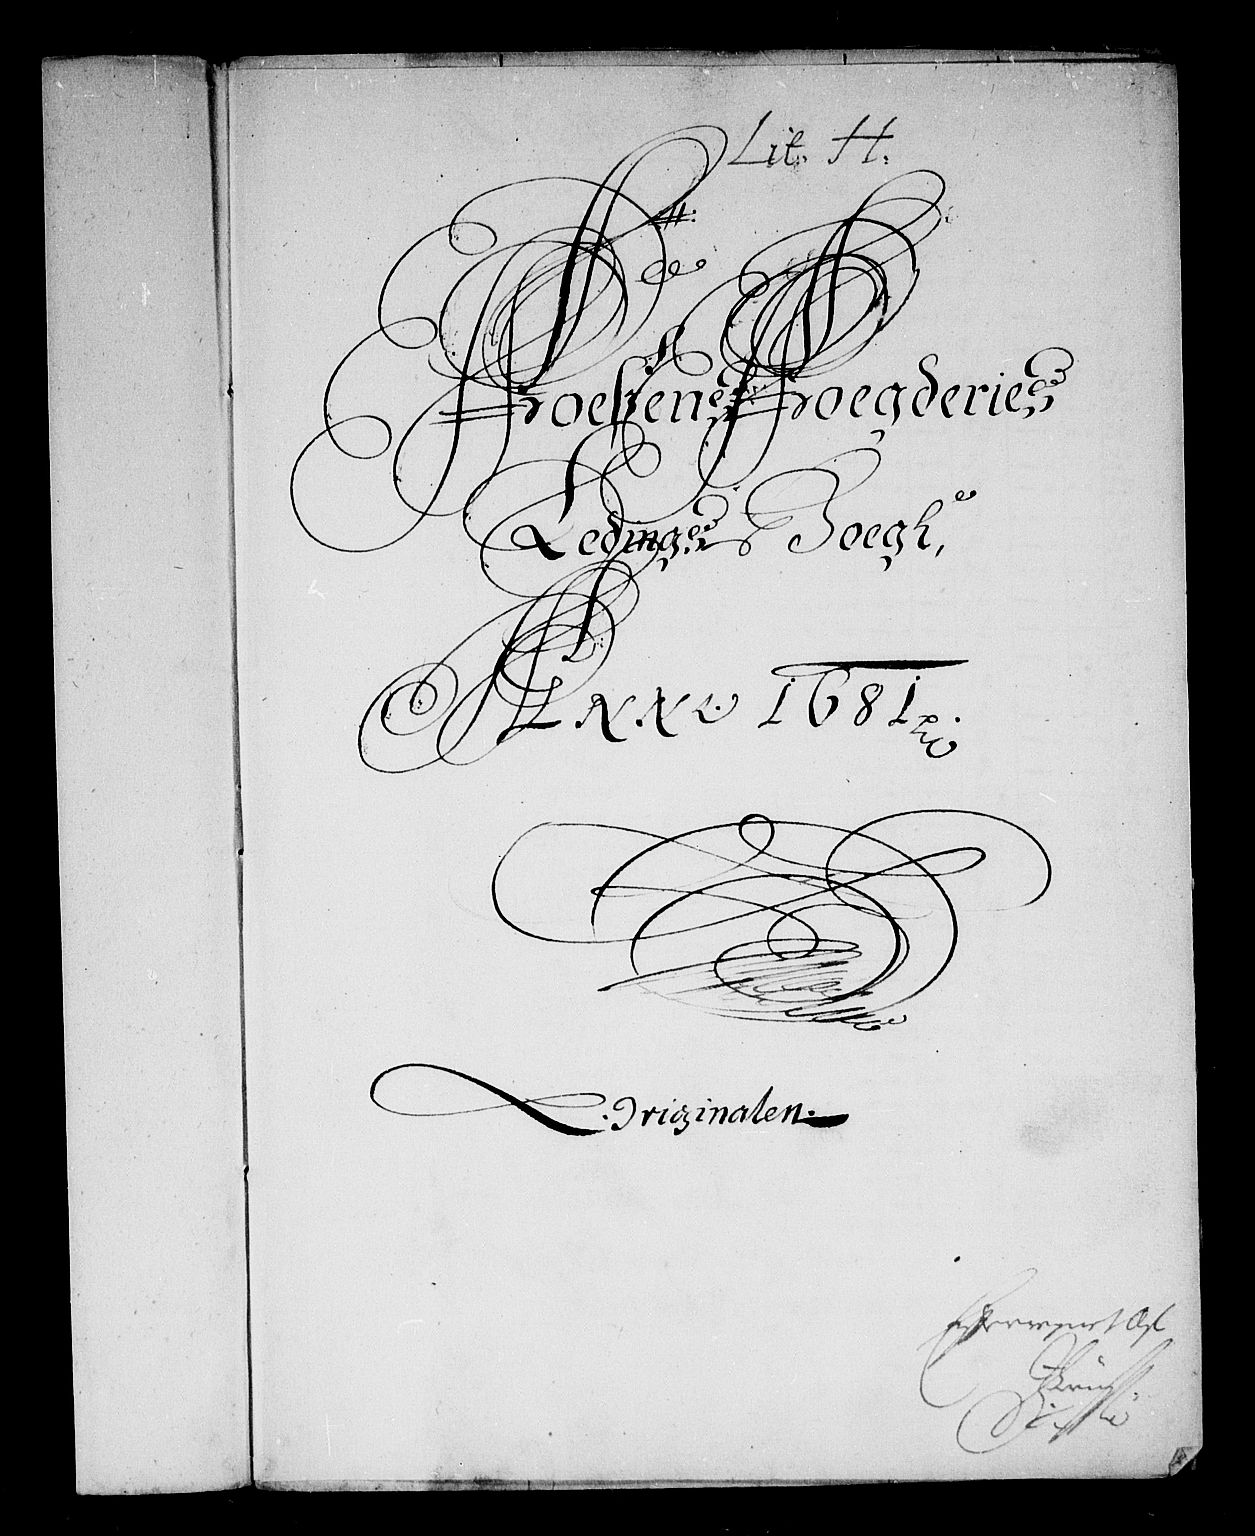 Lit. H.
Foeßens Foegderies
Ledings Boegh,
Anno 1681
. Originalen.